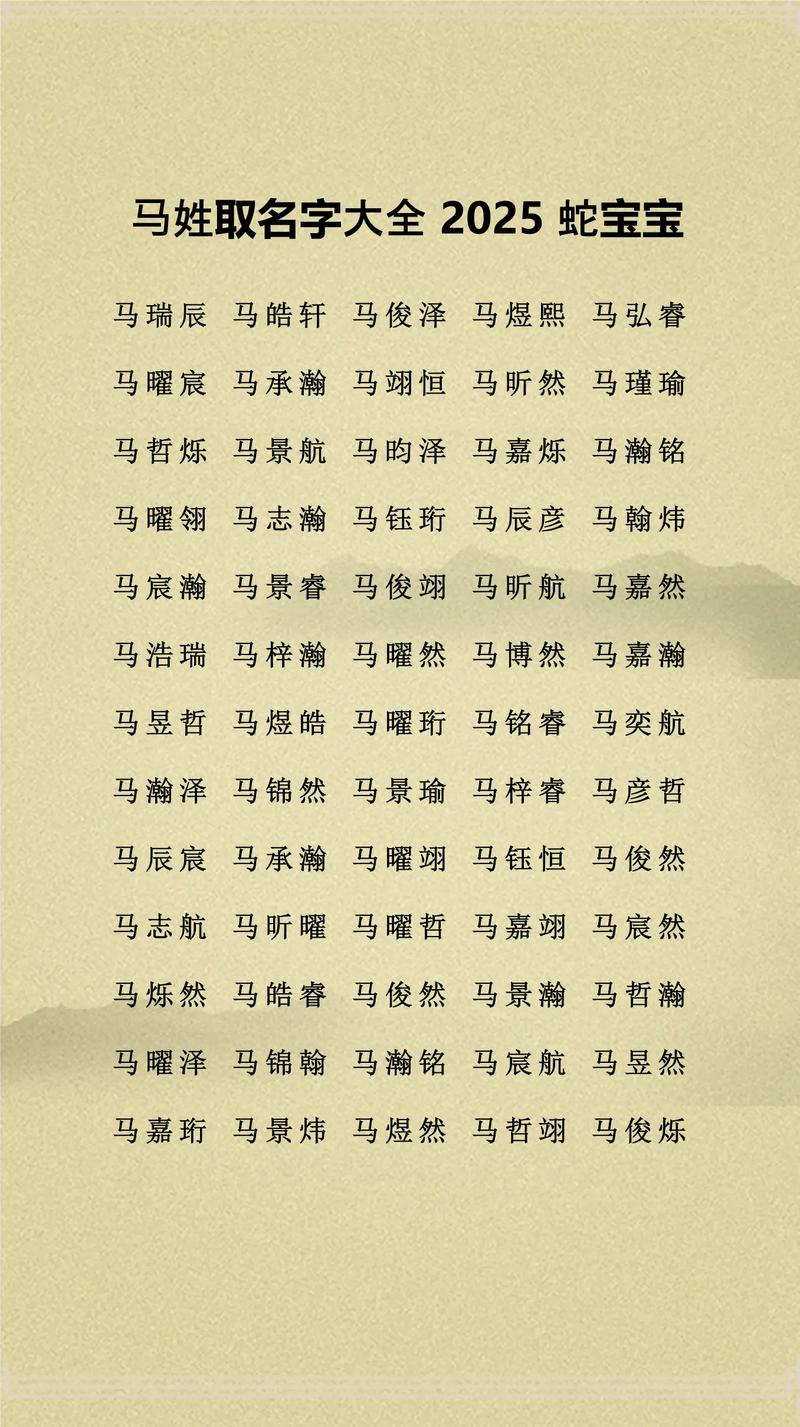 马姓取名字大全 2025 蛇宝宝
马瑞辰 马皓轩 马俊泽 马煜熙 马弘睿
马曜宸 马承瀚 马翊恒 马昕然 马瑾瑜
马哲烁 马景航 马昀泽 马嘉烁 马瀚铭
马曜翎 马志瀚 马钰珩 马辰彦 马翰炜
马宸瀚 马景睿 马俊翊 马昕航 马嘉然
马浩瑞 马梓瀚 马曜然 马博然 马嘉瀚
马昱哲 马煜皓 马曜珩 马铭睿 马奕航
马瀚泽 马锦然 马景瑜 马梓睿 马彦哲
马辰宸 马承瀚 马曜翊 马钰恒 马俊然
马志航 马昕曜 马曜哲 马嘉翊 马宸然
马烁然 马皓睿 马俊然 马景瀚 马哲瀚
马曜泽 马锦翰 马瀚铭 马宸航 马昱然
马嘉珩 马景炜 马煜然 马哲翊 马俊烁